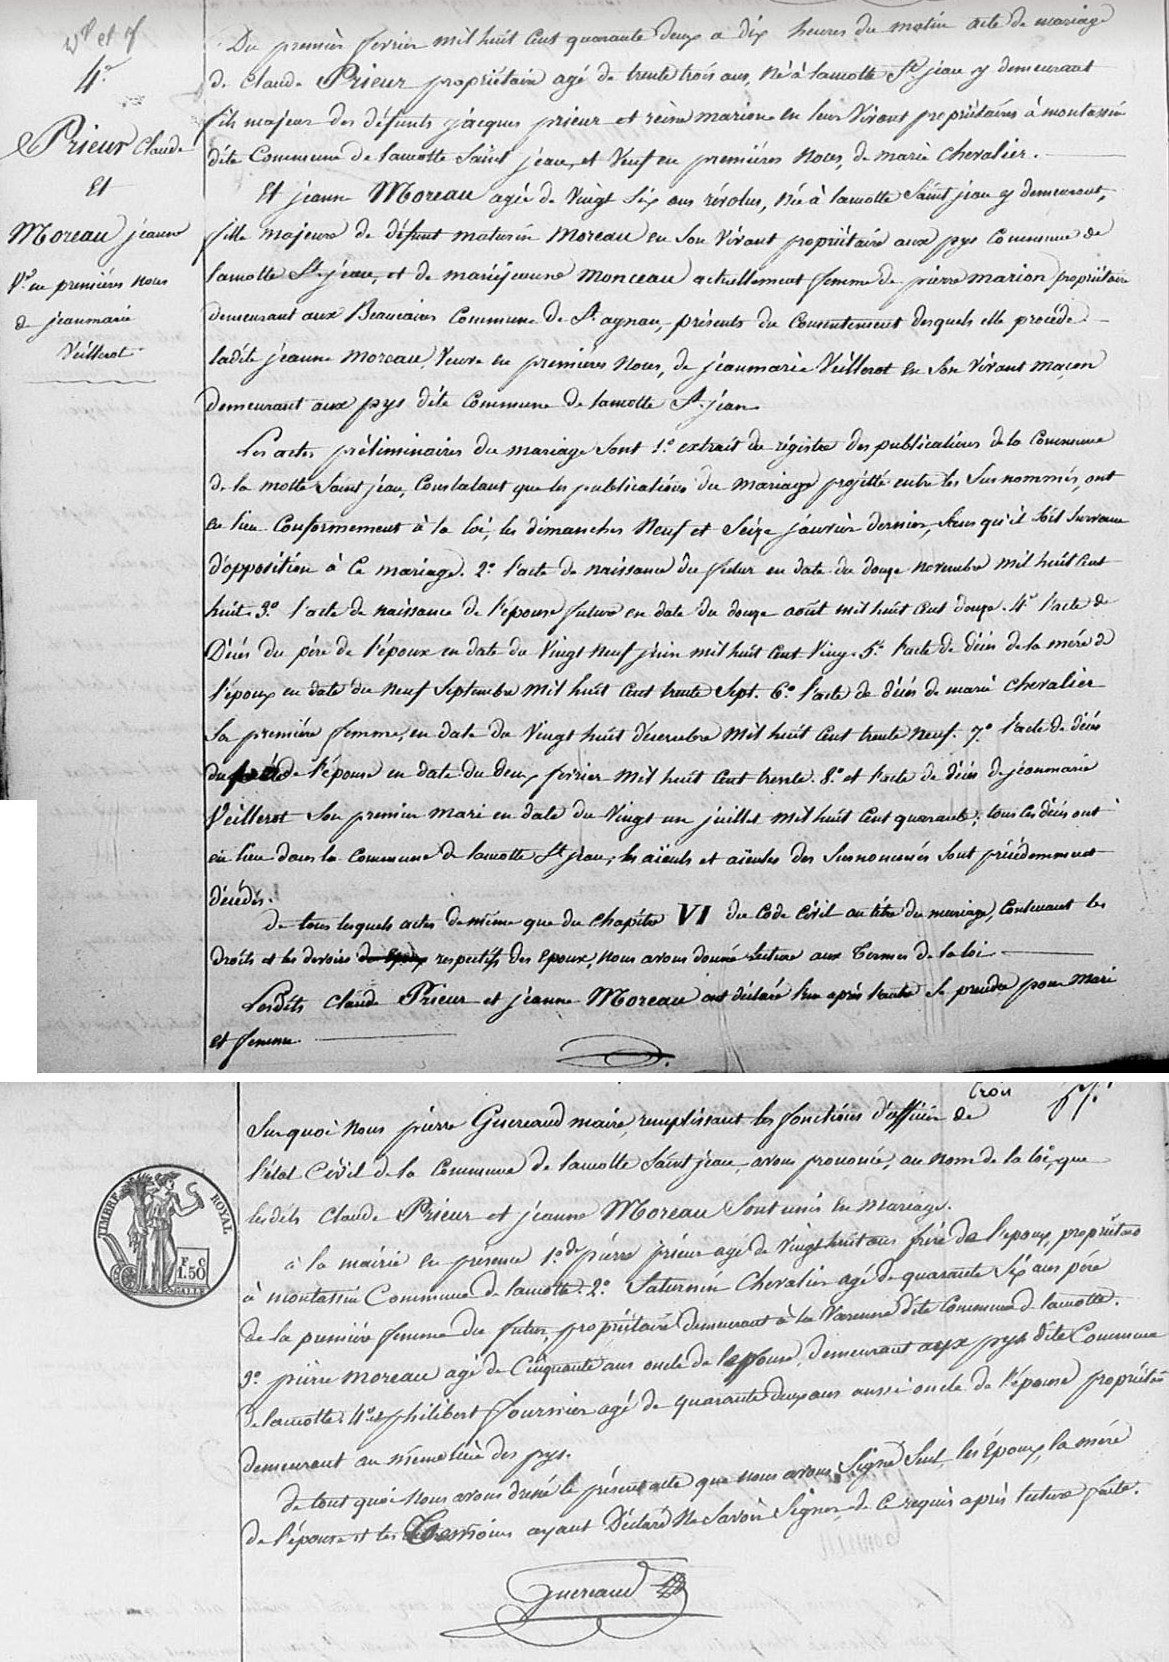 4e
Prieur Claude
Et
Moreau jeanne
Ve en premières noces
de jeanmarie
Veillerot
Du premier fevrier mil huit Cent quarante deux a dix heures du matin acte de mariage
de Claude Prieur propriétaire agé de trente trois ans, né à lamotte St jean y demeurant
fils majeur des défunts jacques prieur et reine marion en leur Vivant propriétaires à montassin
dite Commune de lamotte Saint jean, et Veuf en premières Noces, de marie Chevalier.
Et jeanne Moreau agée de Vingt Six ans révolus, Née à lamotte Saint jean y demeurant,
fille majeure de défunt maturin Moreau en Son Vivant propriétaire aux pys Commune de
lamotte St jean, et de mariejeanne Monceau actuellement femme de pierre marion propriétaire
demeurant aux Beaucaires Commune de St aynan, présents du Consentement desquels elle procéde
ladite jeanne Moreau, Veuve en premières Noces, de jeanmarie Veillerot en Son Vivant Maçon
demeurant aux pys dite Commune de lamotte St jean
Les actes préliminaires du mariage Sont 1o extrait du régistre des publications de la Commune
de la motte Saint jean, Constatant que les publications du mariage projetté entre les Susnommés, ont
eu lieu Conformement à la loi, les dimanches Neuf et Seize janvier dernier, Sans qu'il Soit Survenu
d'opposition à Ce mariage. 2o l'acte de naissance du futur en date du douze novembre mil huit Cent
huit. 3o l'acte de naissance de l'épouse future en date du douze août mil huit Cent douze. 4o l'acte de
Décès du père de l'époux en date du Vingt Neuf juin mil huit Cent Vingt. 5o l'acte de décès de la mère de
l'époux en date du Neuf Septembre Mil huit Cent trente Sept. 6o l'acte de décès de marie Chevalier
Sa première femme, en date du Vingt huit décembre Mil huit Cent trente Neuf. 7o l'acte de décès
du père de l'épouse en date du deux février Mil huit Cent trente 8o et l'acte de décès de jeanmarie
Veillerot Son premier Mari en date du Vingt un juillet Mil huit Cent quarante, tous Ces décès ont
eu lieu dans la Commune de lamotte St jean, les aïeuls et aïeules des Susnommés Sont précédemment
décédés.
de tous lesquels actes de même que du Chapitre VI du Code Civil au titre du mariage, Contenant les
droits et les devoirs respectifs des Epoux, Nous avons donné lecture aux Termes de la loi
Lesdits Claude Prieur et jeanne Moreau ont déclaré l'un après l'autre Se prendre pour Mari
et femme.
trois
Sur quoi Nous pierre Guereaud maire, remplissant les fonctions d'officier de
l'état Civil de la Commune de lamotte Saint jean, avons prononcé, au nom de la loi, que
lesdits Claude Prieur et jeanne Moreau Sont unis en mariage.
à la mairie en présence 1o de pierre prieur agé de Vingt huit ans frère de l'époux, propriétaire
à montassin Commune de lamotte. 2o Saturnin Chevalier agé de quarante Six ans père
de la première femme du futur, propriétaire demeurant à la Varenne dite Commune de lamotte.
3o pierre Moreau agé de Cinquante ans oncle de l'épouse, demeurant aux pys dite Commune
de lamotte. 4o et philibert fournier agé de quarante deux ans aussi oncle de l'épouse propriétaire
demeurant au même lieu des pys.
de tout quoi Nous avons dressé le présent acte que nous avons Signé Seul, les époux, la mère
de l'épouse et les Temoins ayant Déclaré Ne Savoir Signer, de Ce requis après lecture faite.
Guereaud
TIMBRE ROYAL
F. C
1.50